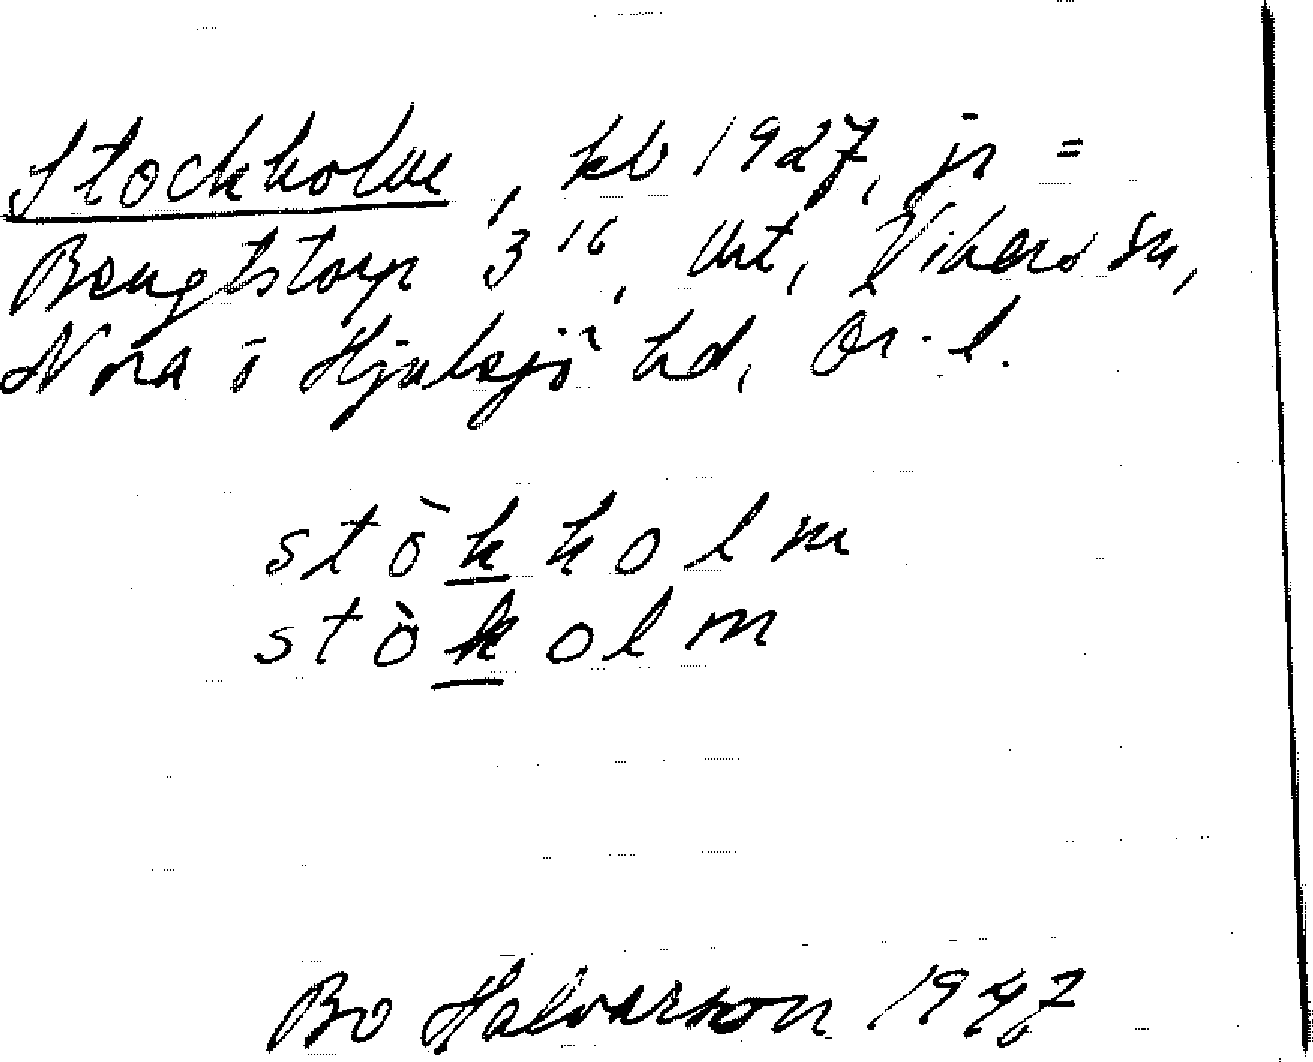 Stockholm, kb 1927, jr =
Bengtstorp 3¹⁶, Urt, Vikers sn,
Nora o Hjulsjö hd, Ör. l.
stò̈kkolm
stòkolm
Bo Halvarson 1947